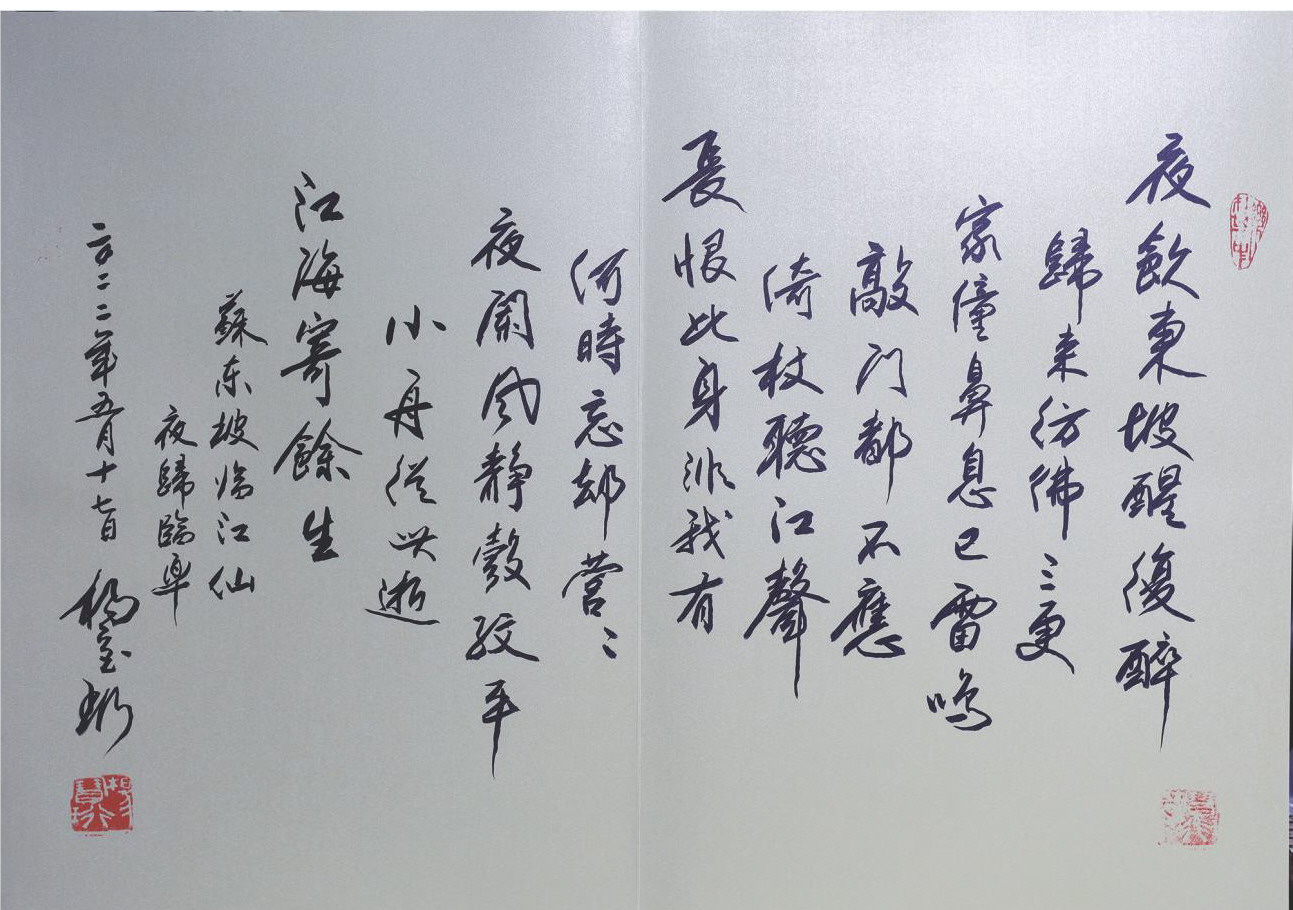 夜飲東坡醒復醉
歸来彷彿三更
家僮鼻息已雷鳴
敲门都不應
倚杖聽江聲
長恨此身非我有
何時忘却營〻
夜闌风静縠紋平
小舟從此逝
江海寄餘生
蘇东坡临江仙
夜歸臨皋
二〇二二年五月十七日 楊